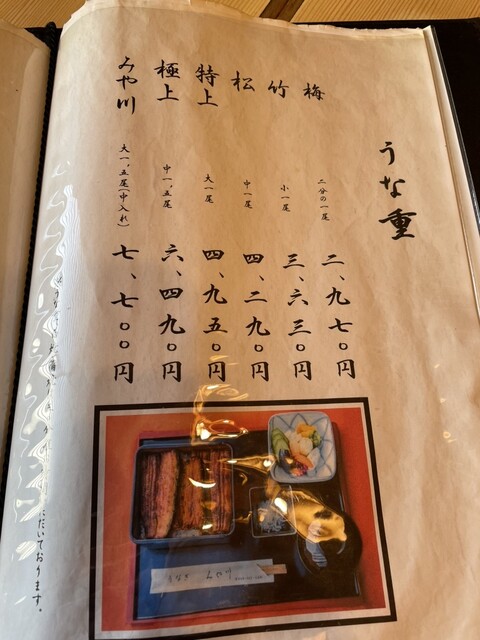 うな重
梅 二分の一尾 二、九七〇円
竹 小一尾 三、六三〇円
松 中一尾 四、二九〇円
特上 大一尾 四、九五〇円
極上 中一、五尾 六、四九〇円
みや川 大一、五尾(中入れ) 七、七〇〇円
うなぎ みや川
ただいております。